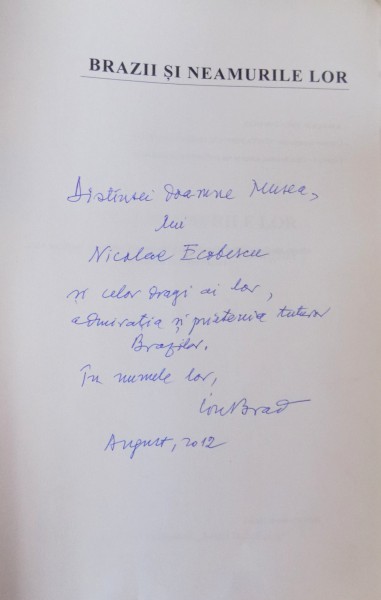 BRAZII ȘI NEAMURILE LOR
Distinsei doamne Musea,
lui
Nicolae Ecobescu
și celor dragi ai lor,
admirația și prietenia tuturor
Brazilor.
În numele lor,
Ion Brad
August, 2012